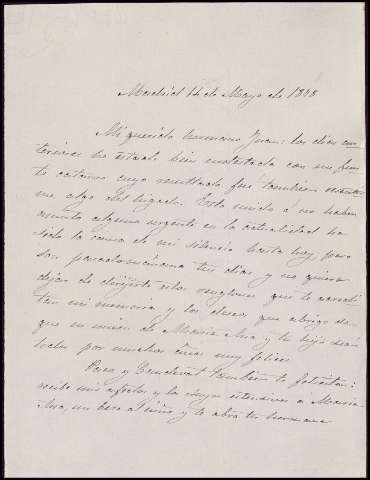 Madrid 14 de Mayo de 1898
Mi querido hermano Juan: los días an
teriores he estado bien molestada con un fuer
te catarro cuyo resultado fué también
me algo del hígado. Esto unido á no haber
asunto alguno urgente en la actualidad ha
sido la causa de mi silencio hasta hoy, pero
son pasado mañana tus días y no quiero
dejar de dirigirte estos renglones que te acredi
ten mi memoria y los deseos que abrigo de
que en union de Maria Ana y tu hijo seais
todos por muchos años muy felices
Pepe y también te felicitan:
recibe mis afectos y los suyos estensivos a Maria
Ana, un beso al niño y te abraza tu hermana